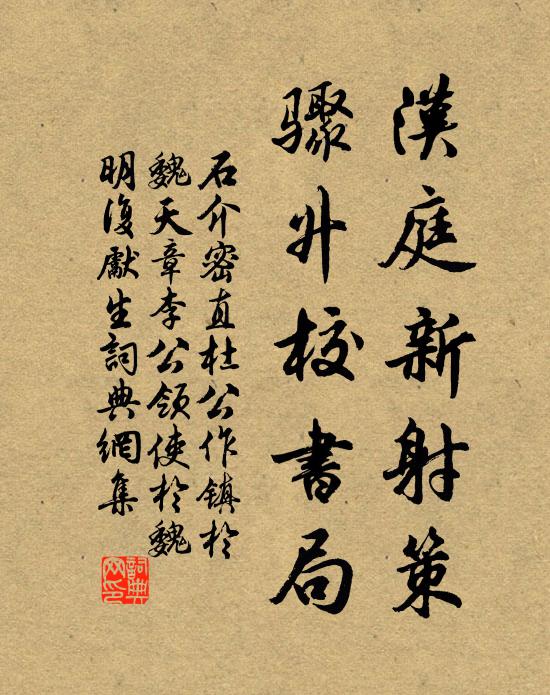 漢庭新射策
驟升校書局
石介密直杜公作鎮於
魏天章李公領使於魏
明復獻生詞典網集
詞典网印